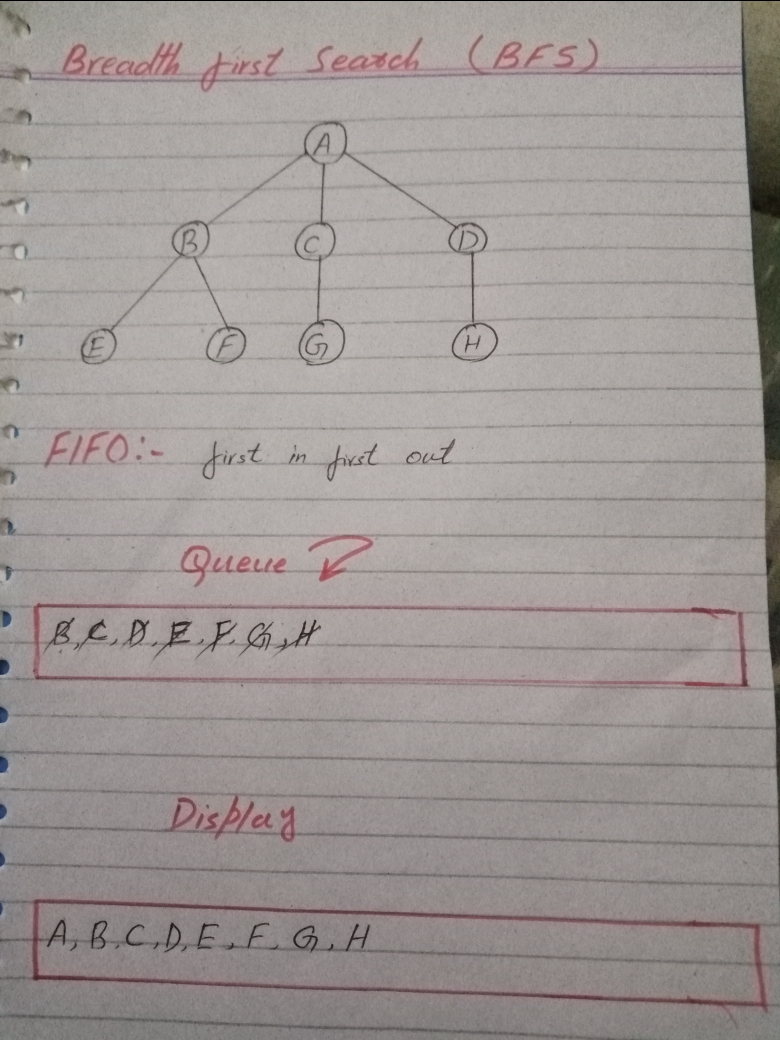 Breadth first Search (BFS)
A
B C D
E F G H
FIFO:- first in first out
Queue
B, C, D, E, F, G, H
Display
A, B, C, D, E, F, G, H